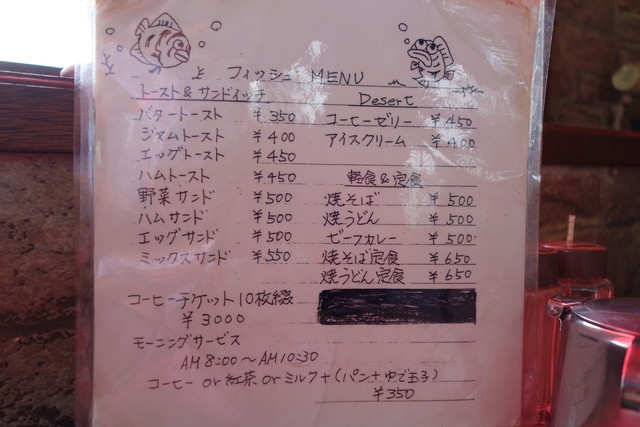 フィッシュ MENU
トースト&サンドイッチ
バタートースト ¥350
ジャムトースト ¥400
エッグトースト ¥450
ハムトースト ¥450
野菜サンド ¥500
ハムサンド ¥500
エッグサンド ¥500
ミックスサンド ¥550
Desert
コーヒーゼリー ¥450
アイスクリーム ¥400
軽食&定食
焼そば ¥500
焼うどん ¥500
ビーフカレー ¥500
焼そば定食 ¥650
焼うどん定食 ¥650
コーヒーチケット10枚綴
¥3000
モーニングサービス
AM 8:00〜AM10:30
コーヒー or 紅茶 or ミルク+(パン+ゆで玉子)
¥350